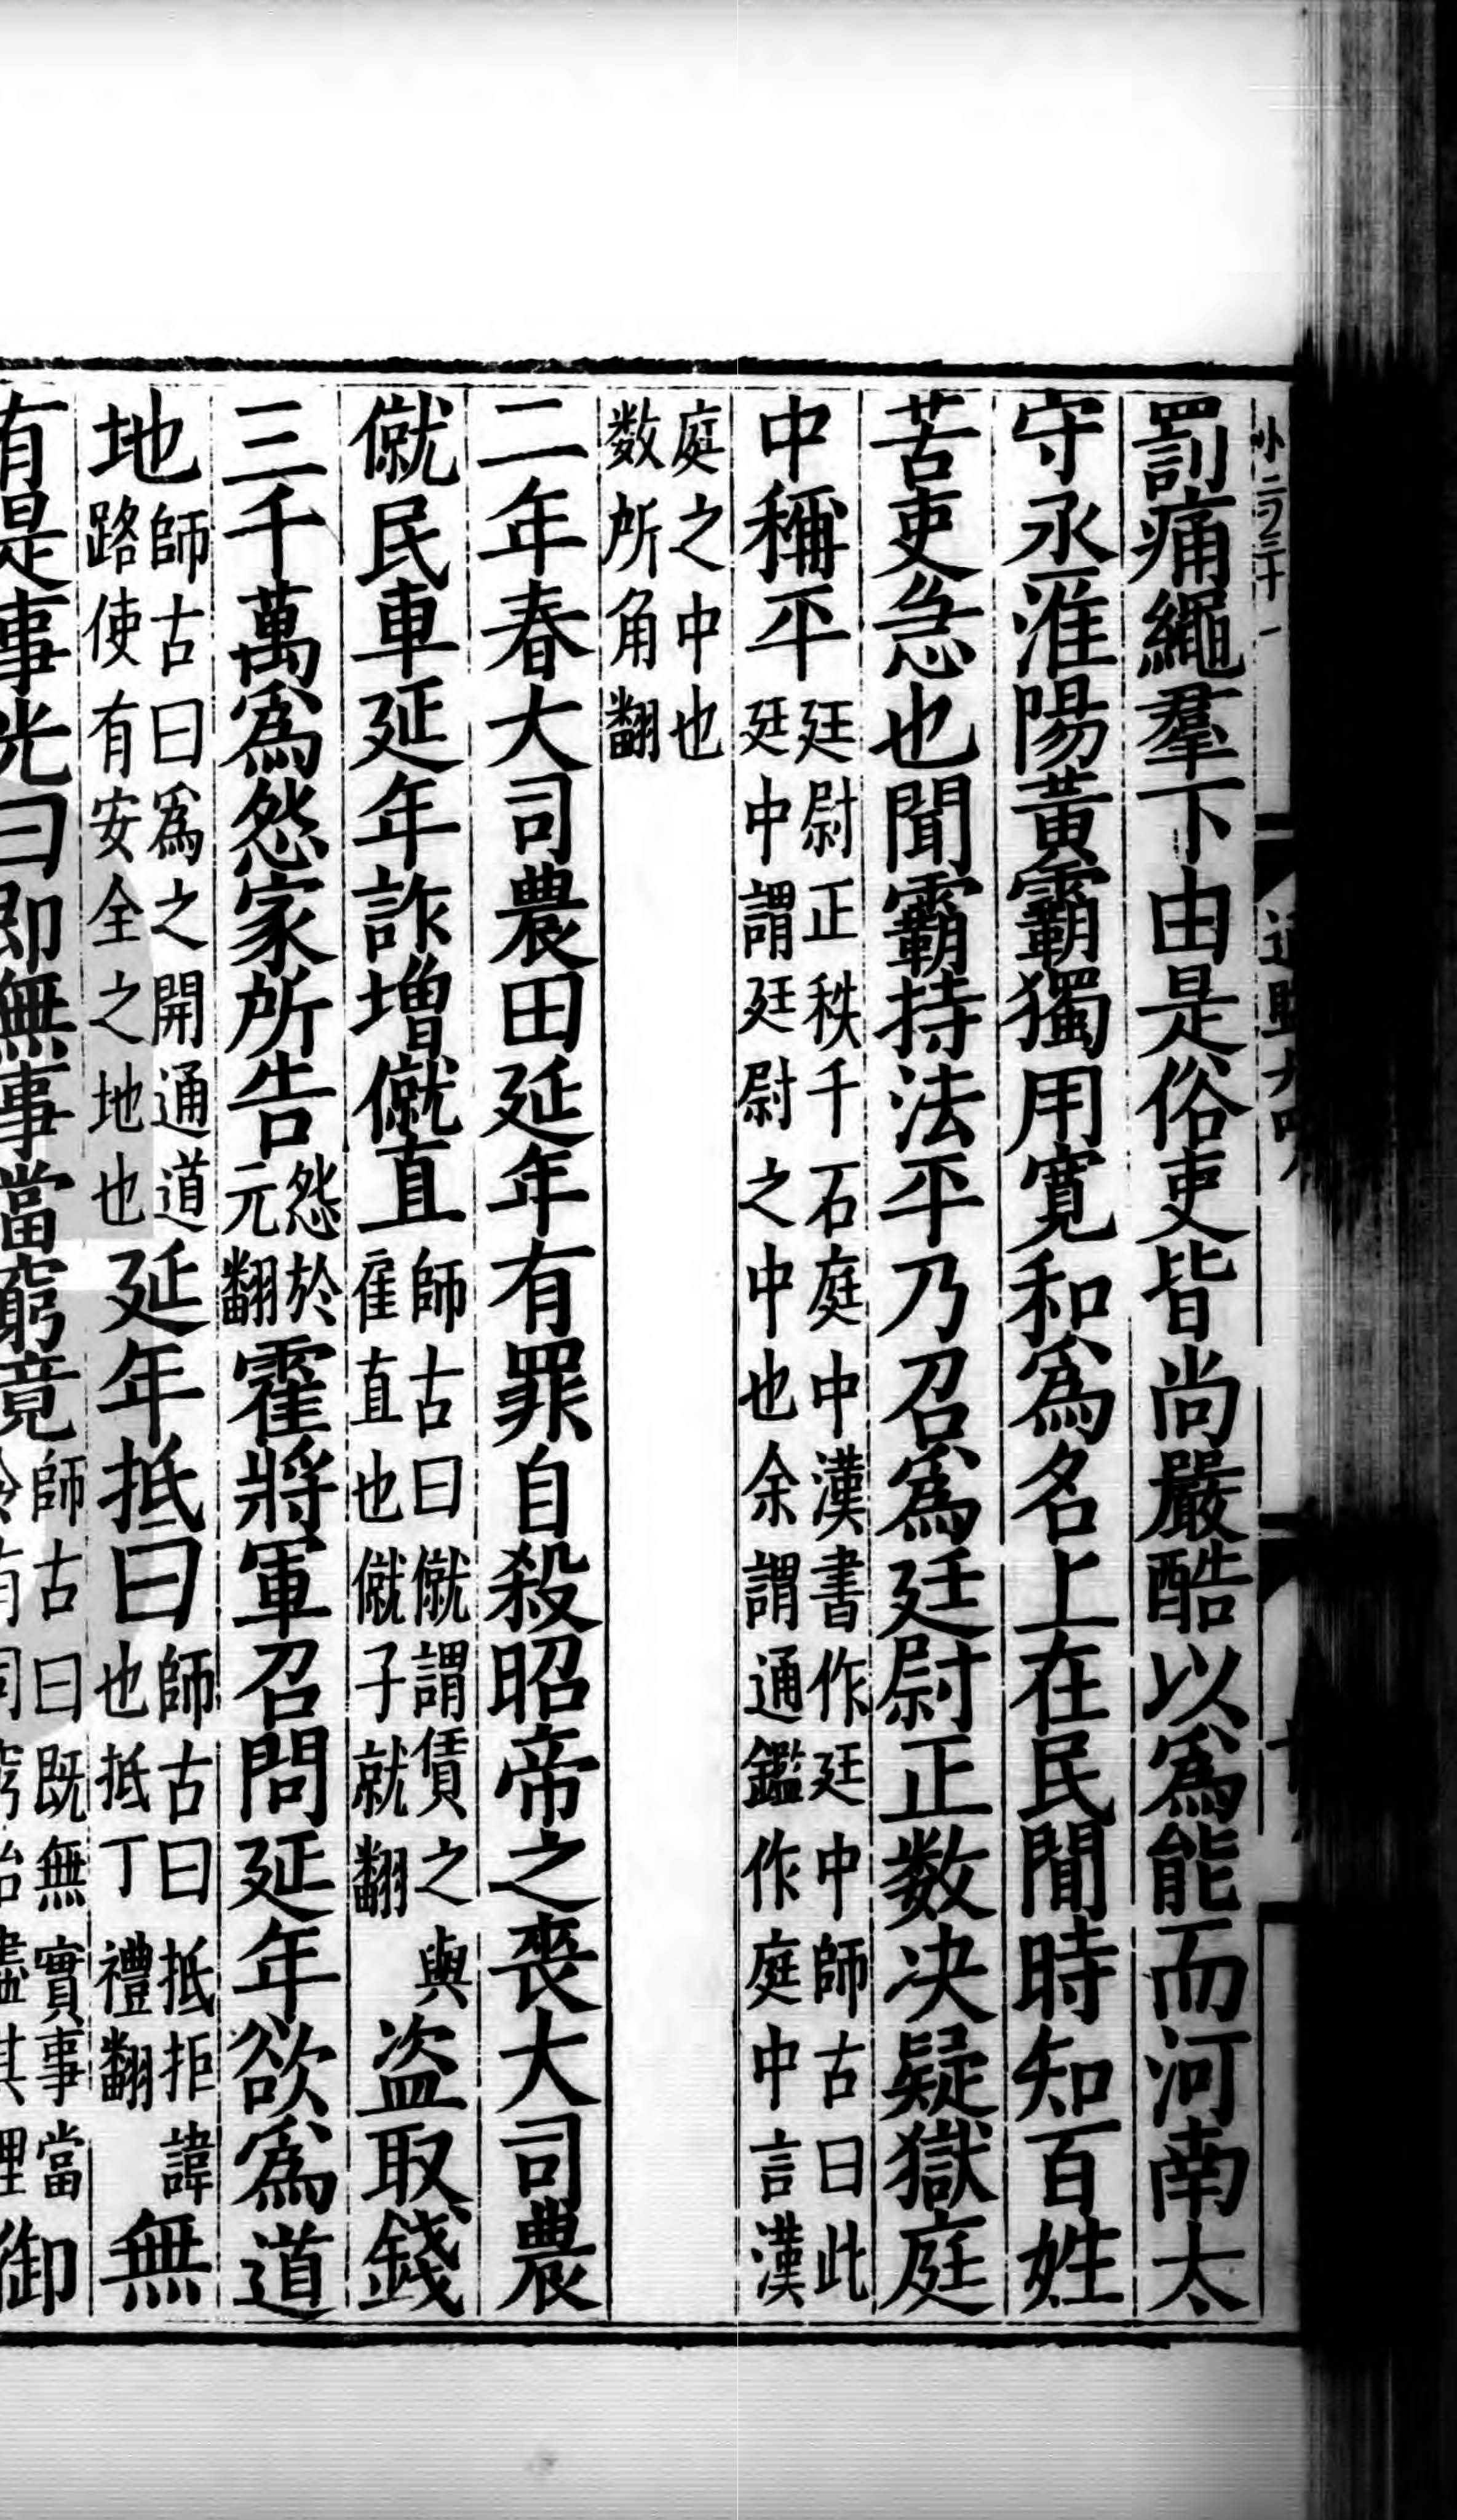 罰痛繩羣下由是俗吏皆尚嚴酷以爲能而河南太
守丞淮陽黃霸獨用寬和爲名上在民閒時知百姓
苦吏急也聞霸持法平乃召爲廷尉正数決疑獄庭
中稱平
廷尉正秩千石庭中漢書作廷中師古曰此
廷中謂廷尉之中也余謂通鑑作庭中言漢
庭之中也
数所角翻
二年春大司農田延年有罪自殺昭帝之喪大司農
僦民車延年詐增僦直
師古曰僦謂賃之與
雇直也僦子就翻
盜取錢
三千萬爲怨家所告
怨於
元翻
霍將軍召問延年欲爲道
地
師古曰爲之開通道
路使有安全之地也
延年抵曰
師古曰抵拒諱
也抵丁禮翻
無
有是事光曰即無事當窮竟
師古曰既無實事當
御